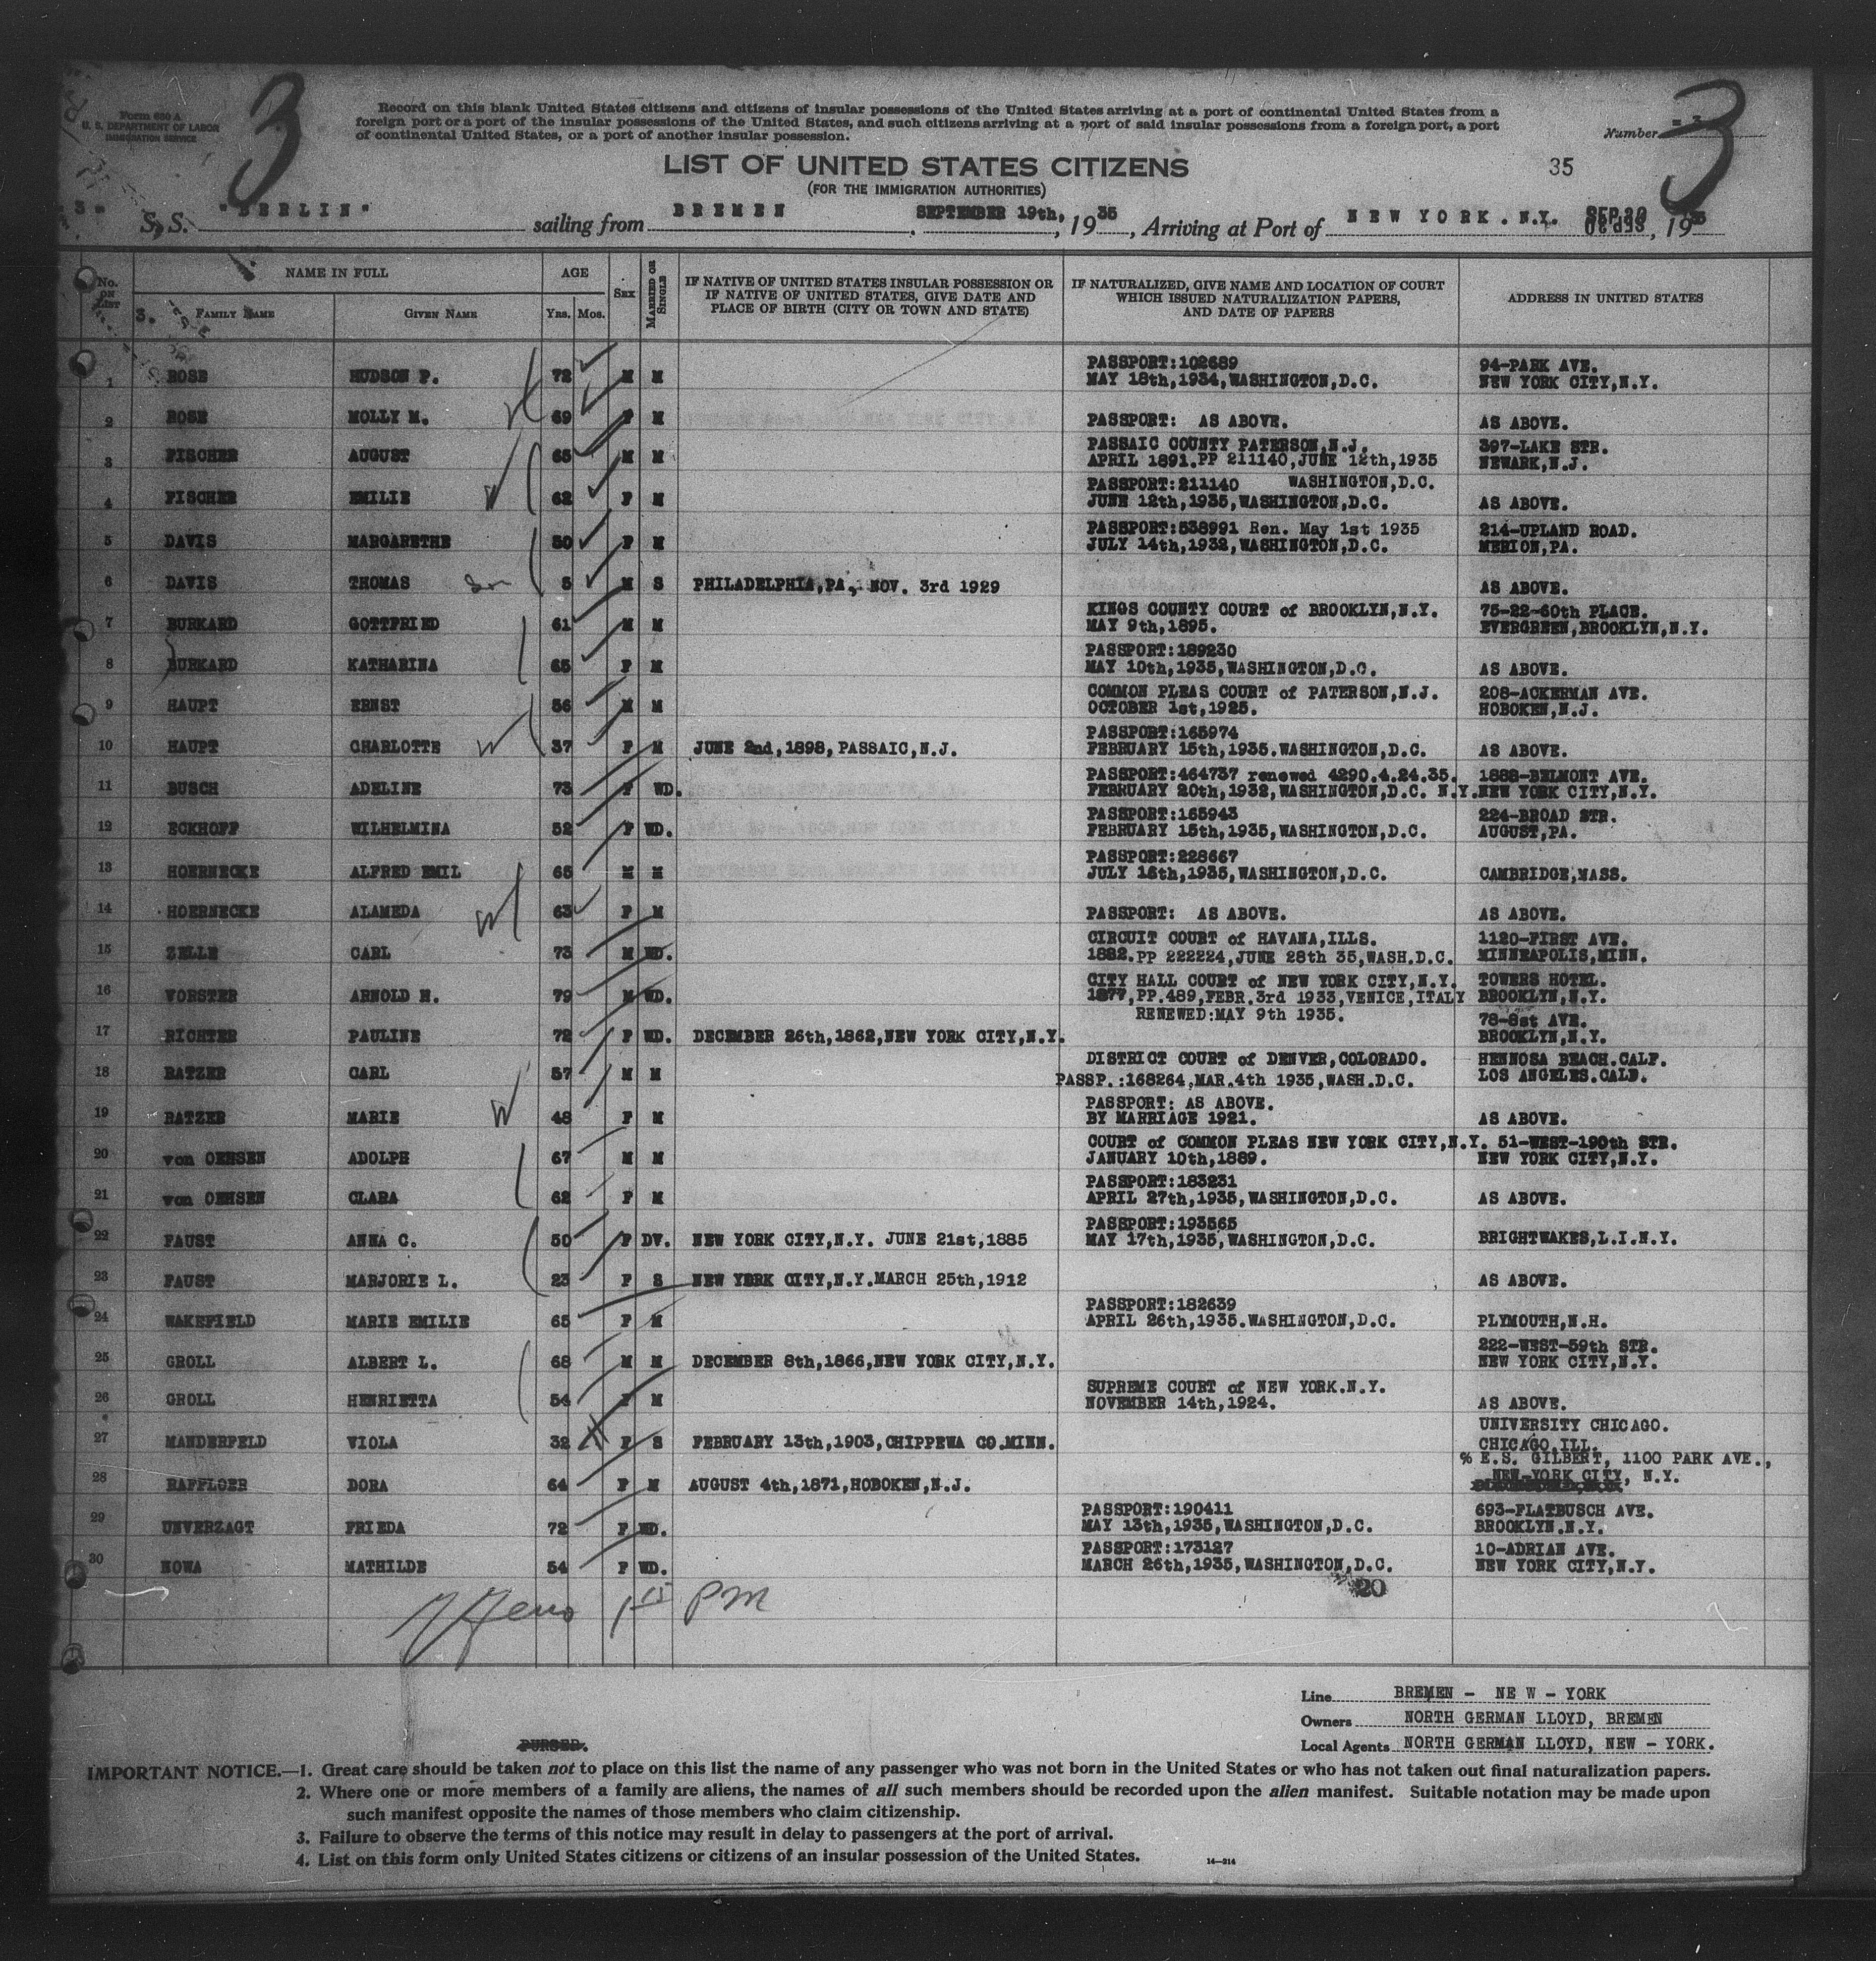 Form 630 A
U. S. DEPARTMENT OF LABOR
IMMIGRATION SERVICE
3
Record on this blank United States citizens and citizens of insular possessions of the United States arriving at a port of continental United States from a
foreign port or a port of the insular possessions of the United States, and such citizens arriving at a port of said insular possessions from a foreign port, a port
of continental United States, or a port of another insular possession.
Number 3
LIST OF UNITED STATES CITIZENS
35
(FOR THE IMMIGRATION AUTHORITIES)
S. S. "BERLIN" sailing from BREMEN, SEPTEMBER 19th, 1935, Arriving at Port of NEW YORK. N.Y. SEP 30, 1935
No. on List
NAME IN FULL
FAMILY NAME GIVEN NAME
AGE
Yrs. Mos.
SEX
MARRIED OR SINGLE
IF NATIVE OF UNITED STATES INSULAR POSSESSION OR
IF NATIVE OF UNITED STATES, GIVE DATE AND
PLACE OF BIRTH (CITY OR TOWN AND STATE)
IF NATURALIZED, GIVE NAME AND LOCATION OF COURT
WHICH ISSUED NATURALIZATION PAPERS,
AND DATE OF PAPERS
ADDRESS IN UNITED STATES
3.
PASSPORT:102689 94-PARK AVE.
1 ROSE HUDSON P. 72 M M MAY 18th,1934,WASHINGTON,D.C. NEW YORK CITY,N.Y.
2 ROSE MOLLY M. 69 F M PASSPORT: AS ABOVE. AS ABOVE.
PASSAIC COUNTY PATERSON,N.J. 397-LAKE STR.
3 FISCHER AUGUST 65 M M APRIL 1891.PP 211140,JUNE 12th,1935 NEWARK,N.J.
PASSPORT:211140 WASHINGTON,D.C.
4 FISCHER EMILIE 62 F M JUNE 12th,1935,WASHINGTON,D.C. AS ABOVE.
PASSPORT:538991 Ren. May 1st 1935 214-UPLAND ROAD.
5 DAVIS MARGARETHE 30 F M JULY 14th,1932,WASHINGTON,D.C. MERION,PA.
6 DAVIS THOMAS Son 5 M S PHILADELPHIA,PA., NOV. 3rd 1929 AS ABOVE.
KINGS COUNTY COURT of BROOKLYN,N.Y. 75-22-60th PLACE.
7 BURKARD GOTTFRIED 61 M M MAY 9th,1895. EVERGREEN,BROOKLYN,N.Y.
PASSPORT:189230
8 BURKARD KATHARINA 65 F M MAY 10th,1935,WASHINGTON,D.C. AS ABOVE.
COMMON PLEAS COURT of PATERSON,N.J. 208-ACKERMAN AVE.
9 HAUPT ERNST 56 M M OCTOBER 1st,1925. HOBOKEN,N.J.
PASSPORT:165974
10 HAUPT CHARLOTTE 37 F M JUNE 2nd,1898,PASSAIC,N.J. FEBRUARY 15th,1935.WASHINGTON,D.C. AS ABOVE.
PASSPORT:464737 renewed 4290.4.24.35. 1888-BELMONT AVE.
11 BUSCH ADELINE 73 F WD. FEBRUARY 20th,1932,WASHINGTON,D.C. N.Y. NEW YORK CITY,N.Y.
PASSPORT:165943 224-BROAD STR.
12 ECKHOFF WILHELMINA 52 F WD. FEBRUARY 15th,1935,WASHINGTON,D.C. AUGUST,PA.
PASSPORT:228667
13 HOERNECKE ALFRED EMIL 65 M M JULY 16th,1935,WASHINGTON,D.C. CAMBRIDGE,MASS.
14 HOERNECKE ALAMEDA 63 F M PASSPORT: AS ABOVE. AS ABOVE.
CIRCUIT COURT of HAVANA,ILLS. 1120-FIRST AVE.
15 ZELLE CARL 73 M WD. 1882.PP 222224,JUNE 28th 35,WASH.D.C. MINNEAPOLIS,MINN.
CITY HALL COURT of NEW YORK CITY,N.Y. TOWERS HOTEL.
16 VORSTER ARNOLD H. 79 M WD. 1877,PP.489,FEBR.3rd 1933,VENICE,ITALY BROOKLYN,N.Y.
RENEWED:MAY 9th 1935. 78-8st AVE.
17 RICHTER PAULINE 72 F WD. DECEMBER 26th,1862,NEW YORK CITY,N.Y. BROOKLYN,N.Y.
DISTRICT COURT of DENVER,COLORADO. HENNOSA BEACH.CALF.
18 RATZER CARL 57 M M PASSP.:168264,MAR.4th 1935,WASH.D.C. LOS ANGELES.CALD.
PASSPORT: AS ABOVE.
19 RATZER MARIE 48 F M BY MARRIAGE 1921. AS ABOVE.
COURT of COMMON PLEAS NEW YORK CITY,N.Y. 51-WEST-190th STR.
20 von OEHSEN ADOLPH 67 M M JANUARY 10th,1889. NEW YORK CITY,N.Y.
PASSPORT:183231
21 von OEHSEN CLARA 62 F M APRIL 27th,1935,WASHINGTON,D.C. AS ABOVE.
PASSPORT:193565
22 FAUST ANNA C. 50 F DV. NEW YORK CITY,N.Y. JUNE 21st,1885 MAY 17th,1935,WASHINGTON,D.C. BRIGHTWAKES,L.I.N.Y.
23 FAUST MARJORIE L. 23 F S NEW YORK CITY,N.Y.MARCH 25th,1912 AS ABOVE.
PASSPORT:182639
24 WAKEFIELD MARIE EMILIE 65 F M APRIL 26th,1935.WASHINGTON,D.C. PLYMOUTH,N.H.
222-WEST-59th STR.
25 GROLL ALBERT L. 68 M M DECEMBER 8th,1866,NEW YORK CITY,N.Y. NEW YORK CITY,N.Y.
SUPREME COURT of NEW YORK.N.Y.
26 GROLL HENRIETTA 54 F M NOVEMBER 14th,1924. AS ABOVE.
UNIVERSITY CHICAGO.
27 MANDERFELD VIOLA 32 F S FEBRUARY 13th,1903,CHIPPEWA CO.MINN. CHICAGO,ILL.
% E.S. GILBERT, 1100 PARK AVE.,
28 RAFFLOER DORA 64 F M AUGUST 4th,1871,HOBOKEN,N.J. NEW-YORK CITY, N.Y.
PASSPORT:190411 693-FLATBUSCH AVE.
29 UNVERZAGT FRIEDA 72 F WD. MAY 13th,1935,WASHINGTON,D.C. BROOKLYN.N.Y.
PASSPORT:173127 10-ADRIAN AVE.
30 NOWA MATHILDE 54 F WD. MARCH 26th,1935,WASHINGTON,D.C. NEW YORK CITY,N.Y.
20
PM
Line BREMEN - NE W - YORK
Owners NORTH GERMAN LLOYD, BREMEN
Local Agents NORTH GERMAN LLOYD, NEW - YORK.
PURSER.
IMPORTANT NOTICE.—1. Great care should be taken not to place on this list the name of any passenger who was not born in the United States or who has not taken out final naturalization papers.
2. Where one or more members of a family are aliens, the names of all such members should be recorded upon the alien manifest. Suitable notation may be made upon
such manifest opposite the names of those members who claim citizenship.
3. Failure to observe the terms of this notice may result in delay to passengers at the port of arrival.
4. List on this form only United States citizens or citizens of an insular possession of the United States.
14—214